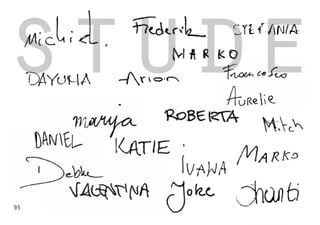 STUDE
Michiel. Frederik STEFANIA
MARKO
DAYUMA Arion Francesco
AURELIE
marija ROBERTA Mitch
DANIEL KATIE. MARKO
Debbie IVANA
VALENTINA Joke Shanti
95